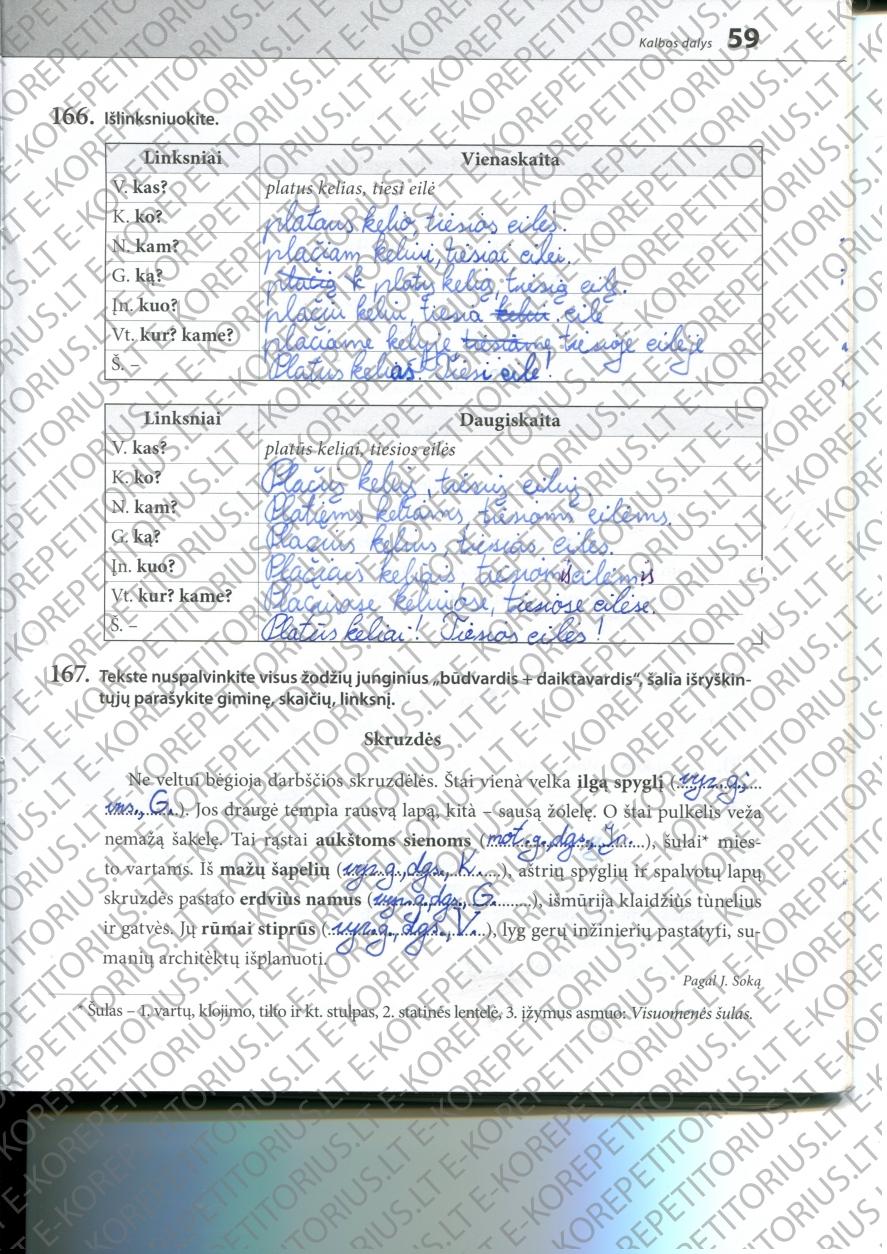 Kalbos dalys 59
166. Išlinksniuokite.
Linksniai Vienaskaita
V. kas? platus kelias, tiesi eilė
K. ko? plataus kelio, tiesios eilės.
N. kam? plačiam keliui, tiesiai eilei.
G. ką? plačią k platų kelią, tiesią eilę.
Įn. kuo? plačiu keliu, tiesia keliu eile
Vt. kur? kame? plačiame kelyje tiesiame tiesioje eilėje
Š. – Platus kelias! Tiesi eile!
Linksniai Daugiskaita
V. kas? platūs keliai, tiesios eilės
K. ko? Plačių kelių, tiesių eilių
N. kam? Platiems keliams, tiesioms eilėms.
G. ką? Plačius kelius, tiesias eiles.
Įn. kuo? Plačiais keliais, tiesiomis eilėmis
Vt. kur? kame? Plačiuose keliuose, tiesiose eilėse.
Š. – Platūs keliai! Tiesios eilės!
167. Tekste nuspalvinkite visus žodžių junginius „būdvardis + daiktavardis“, šalia išryškin-
tųjų parašykite giminę, skaičių, linksnį.
Skruzdės
Ne veltui bėgioja darbščios skruzdėlės. Štai viena velka ilgą spyglį (vyr. g.,
vns., G.). Jos draugė tempia rausvą lapą, kita – sausą žolelę. O štai pulkelis veža
nemažą šakelę. Tai rąstai aukštoms sienoms (mot. g., dgs., Įn.), šulai* mies-
to vartams. Iš mažų šapelių (vyr. g., dgs., K.), aštrių spyglių ir spalvotų lapų
skruzdės pastato erdvius namus (vyr. g., dgs., G.), išmūrija klaidžius tunelius
ir gatves. Jų rūmai stiprūs (vyr. g., dgs., V.), lyg gerų inžinierių pastatyti, su-
manių architektų išplanuoti.
Pagal J. Soką
* Šulas – 1. vartų, klojimo, tilto ir kt. stulpas, 2. statinės lentelė, 3. įžymus asmuo: Visuomenės šulas.
E-KOREPETITORIUS.LT